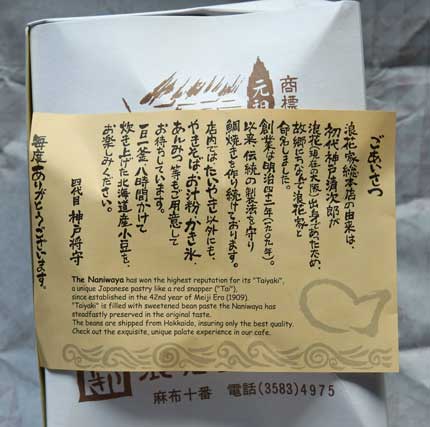 商標
元祖
ごあいさつ
浪花家総本店の由来は、
初代神戸清次郎が
浪花(現在の大阪)出身であったため、
故郷にちなんで浪花家と
命名しました。
創業は明治四十二年(一九〇九年)。
以来、伝統の製法を守り
鯛焼きを作り続けております。
店内ではたいやき以外にも、
やきそば・お汁粉・かき氷
あんみつ等もご用意して
お待ちしています。
一日一釜、八時間かけて
炊き上げた北海道産小豆を、
お楽しみください。
四代目 神戸将守
毎度ありがとうございます。
The Naniwaya has won the highest reputation for its "Taiyaki",
a unique Japanese pastry like a red snapper ("Tai"),
since established in the 42nd year of Meiji Era (1909).
"Taiyaki" is filled with sweetened bean paste the Naniwaya has
steadfastly preserved in the original taste.
The beans are shipped from Hokkaido, insuring only the best quality.
Check out the exquisite, unique palate experience in our cafe.
麻布十番 電話(3583)4975